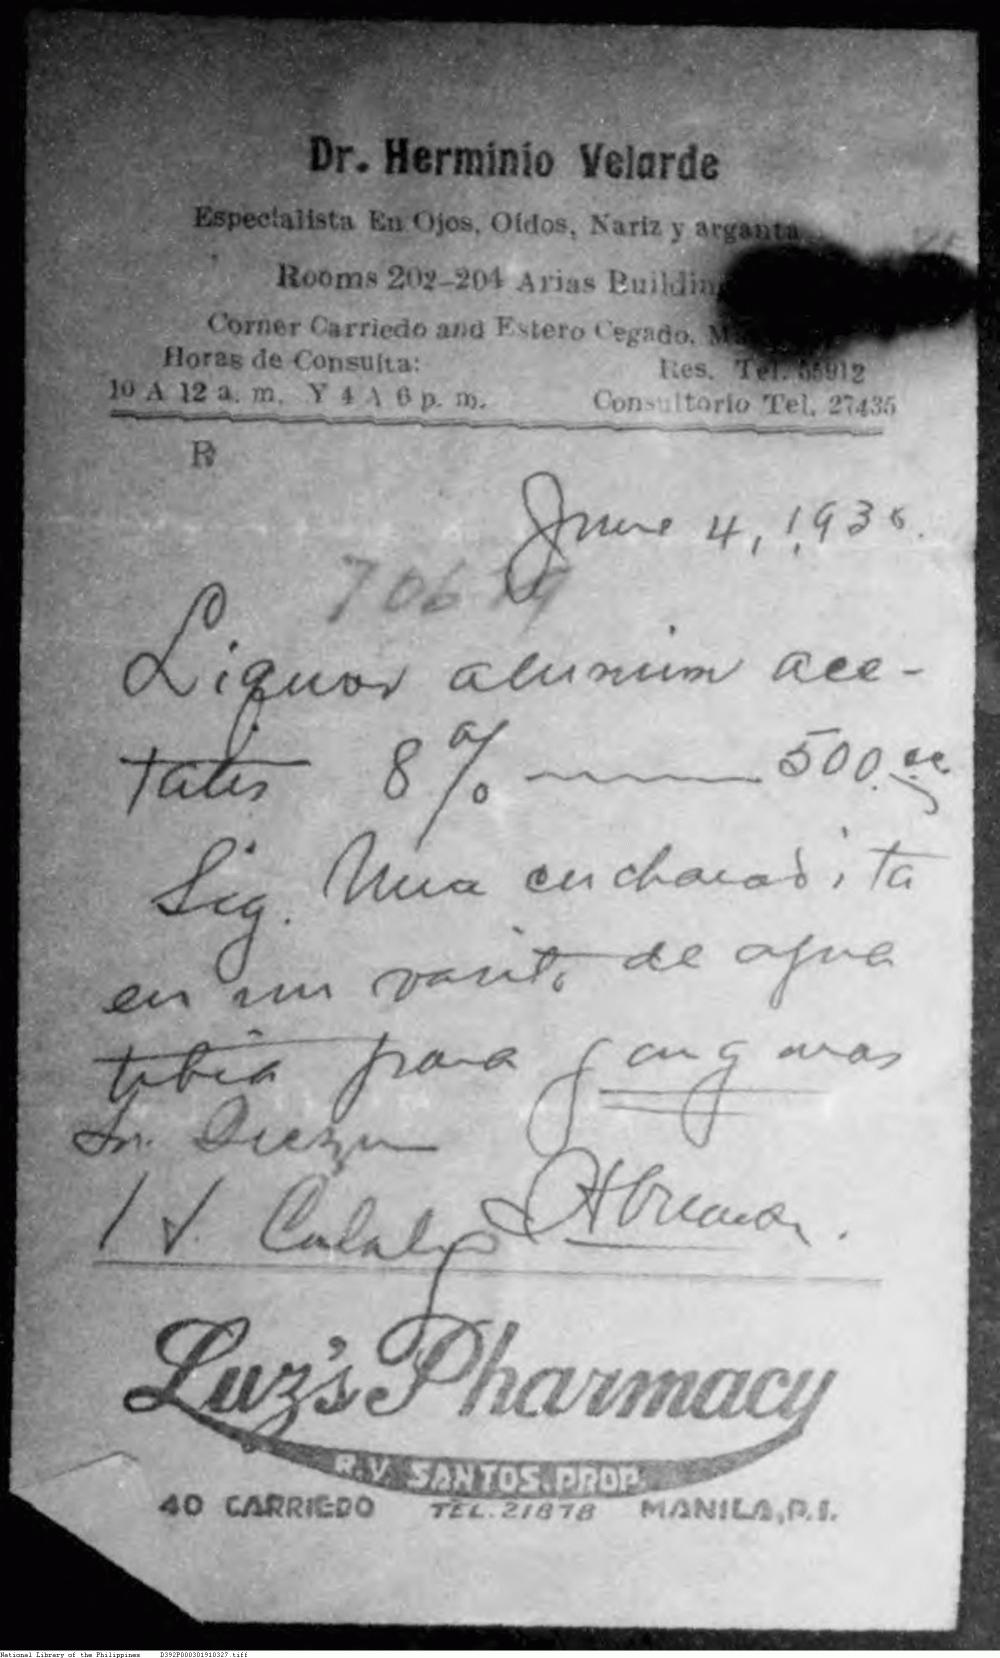 Dr. Herminio Velarde
Especialista En Ojos, Oídos, Nariz y arganta
Rooms 202-204 Arias Buildin
Corner Carriedo and Estero Cegado, M
Horas de Consulta:
Res. Tel. 55912
10 A 12 a. m. Y 4 A 6 p. m.
Consultorio Tel. 27435
℞
June 4, 193
706
Liquor alumium ace-
tatis 8 % 500 cc
Sig. Una cucharadita
en un vasito de agua
tibia para gargaras
Sr.
LUZ'S Pharmacy
R.V. SANTOS. PROP.
40 CARRIEDO TEL. 21878 MANILA, P.I.
National Library of the Philippines D392P000301910327.tiff